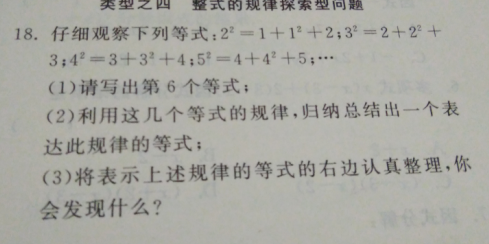 类型之四 整式的规律探索型问题
18. 仔细观察下列等式:2²=1+1²+2;3²=2+2²+
3;4²=3+3²+4;5²=4+4²+5;…
(1)请写出第6个等式;
(2)利用这几个等式的规律,归纳总结出一个表
达此规律的等式;
(3)将表示上述规律的等式的右边认真整理,你
会发现什么?